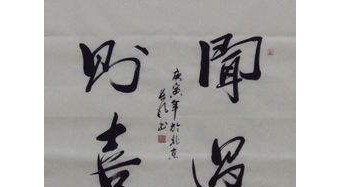 聞過
則喜
庚寅年於北京
書